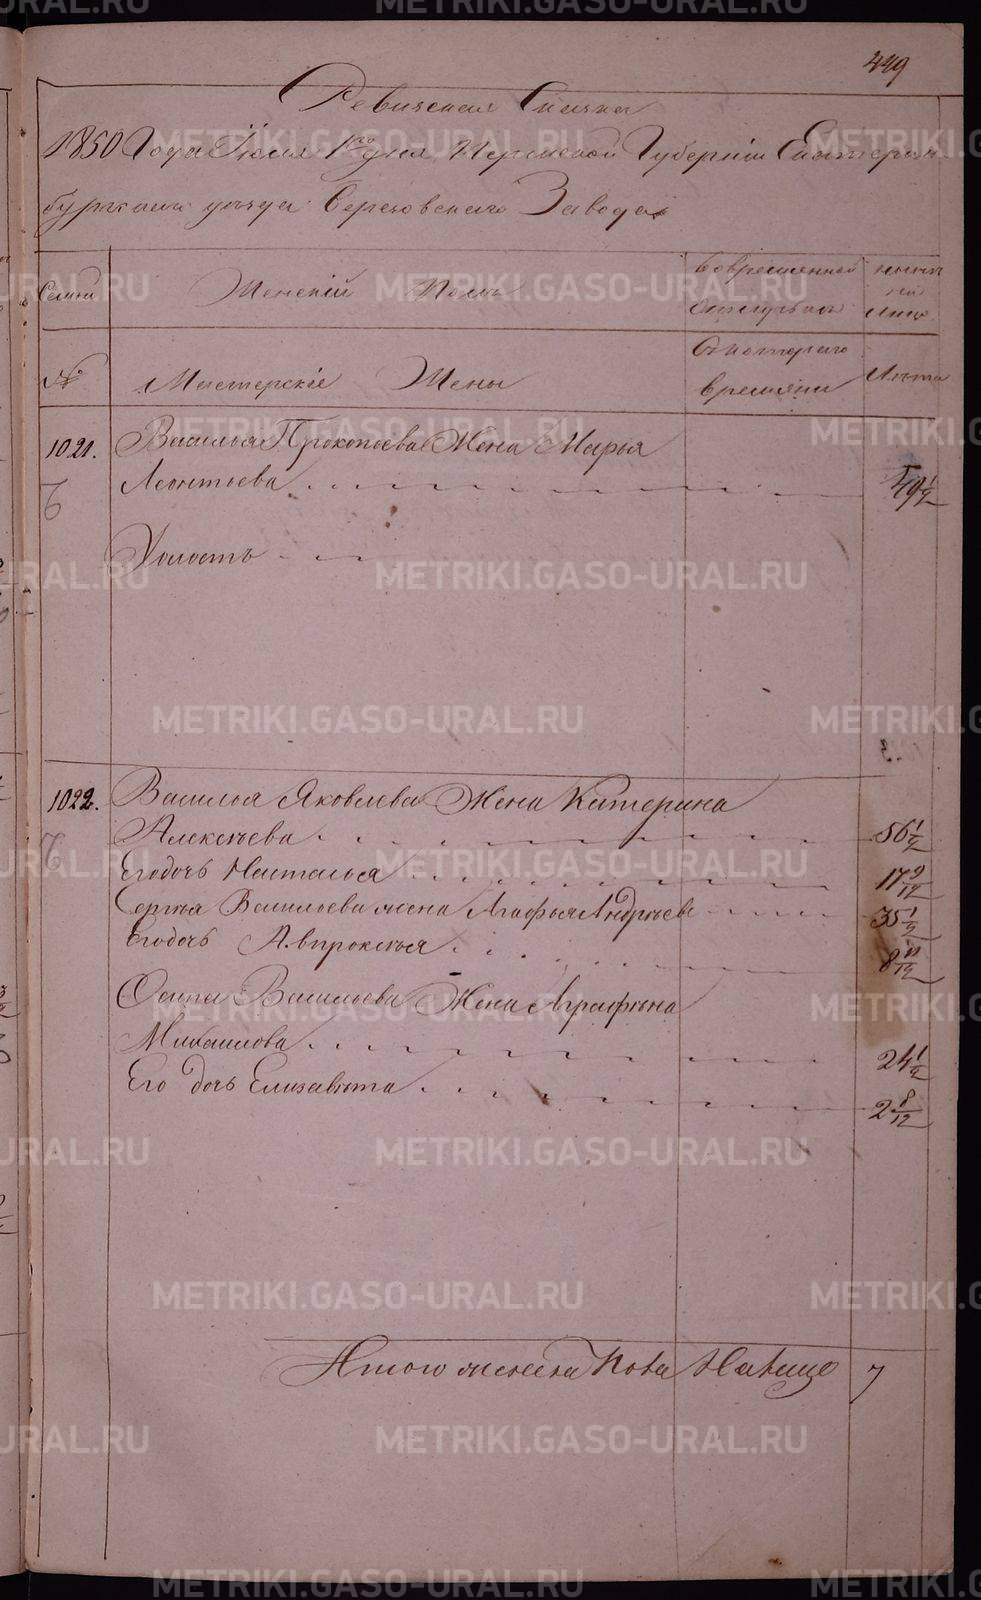 449
Ревизская Сказка
1850 Года Июля 1го дня Пермской Губернiи Екатерин
бургскаго уѣзда Березовскаго Завода
Семьи
Женскiй Полъ
Во временной
отлучкѣ
нынѣ
на
лицо
№
Мастерскiе Жены
Съ котораго
времяни
Лѣта
1021.
Василья Прокопьева Жена Марья
Леонтьева
49 1/2
Холостъ
1022.
Василья Яковлева Жена Катерина
Алексѣева
56 1/2
Его дочь Наталья
17 9/12
Сергѣя Васильева жена Агафья Андрѣева
35 1/2
Его дочь Апвроксѣя
8 11/12
Осипа Васильева Жена Аграфѣна
Михаилова
24 1/2
Его дочь Елизавѣта
2 8/12
Итого женска пола Налице 7
METRIKI.GASO-URAL.RU